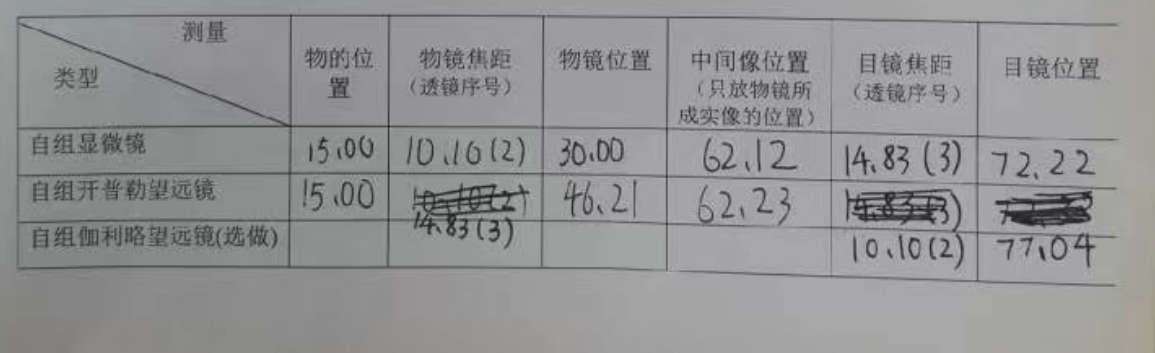 测量
类型
物的位
置
物镜焦距
（透镜序号）
物镜位置
中间像位置
（只放物镜所
成实像的位置）
目镜焦距
（透镜序号）
目镜位置
自组显微镜 15.00 10.10(2) 30.00 62.12 14.83(3) 72.22
自组开普勒望远镜 15.00 46.21 62.23
14.83(3)
自组伽利略望远镜(选做) 10.10(2) 77.04